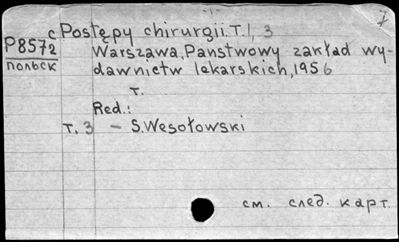 7
с Postępy chirurgii. T. 1, 3
P8572
польск
Warszawa, Panstwowy zakład wy-
dawnictw lekarskich, 1956
т.
Red.:
т. 3 – S. Wesołowski
см. след. карт.